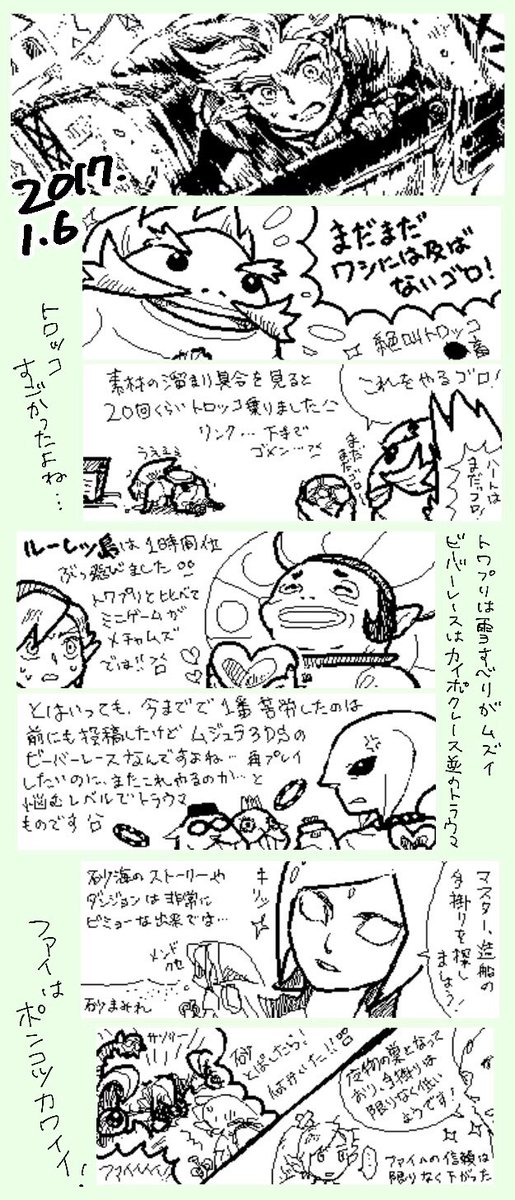 2017.
1.6
まだまだ
ワシには及ば
ないゴロ!
絶叫トロッコ
トロッコ
すごかったよね…
素材の溜まり具合を見ると
20回くらいトロッコ乗りました
リンク…下手で
ゴメン…
これをやるゴロ!
ハートは
まだゴロ!
まだ
まだゴロ!
うえぇぇ
ルーレッツ島は1時間位
ぶっ飛びました
トワプリと比べて
ミニゲームが
メチャムズ
では!?
トワプリは雪すべりがムズイ
ビーバーレースはカイポクレース並のトラウマ
とはいっても、今までで1番苦労したのは
前にも投稿したけどムジュラ3DSの
ビーバーレースなんですよね…再プレイ
したいのに、またこれやるのか…と
悩むレベルでトラウマ
ものです
砂海のストーリーや
ダンジョンは非常に
ビミョーな出来では…
キリッ
マスター、造船の
手掛りを探し
ましょう!
メンド
クセ
砂まみれ
ファイは
ポンコツカワイイ!
サソリー
砂
とばしたら!
魔物の巣となって
おり、手掛りは
限りなく低い
ようです!
ファイへの信頼は
限りなく下がった